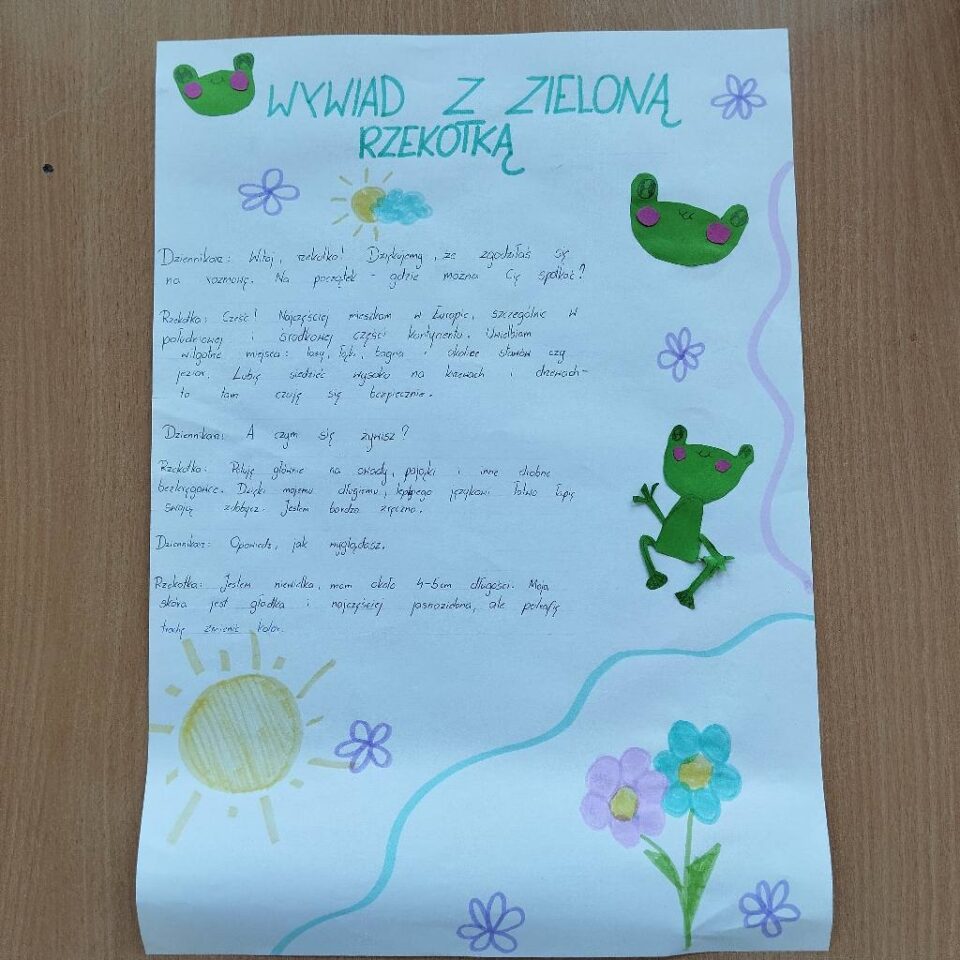 WYWIAD Z ZIELONĄ
RZEKOTKĄ
Dziennikarz: Witaj, rzekotko! Dziękujemy, że zgodziłaś się
na rozmowę. Na początek - gdzie można Cię spotkać?
Rzekotka: Cześć! Najczęściej mieszkam w Europie, szczególnie w
południowej i środkowej części kontynentu. Uwielbiam
wilgotne miejsca: lasy, łąki, bagna i okolice stawów czy
jezior. Lubię siedzieć wysoko na krzewach i drzewach-
to tam czuję się bezpiecznie.
Dziennikarz: A czym się żywisz?
Rzekotka: Poluję głównie na owady, pająki i inne drobne
bezkręgowce. Dzięki mojemu długiemu, językowi łatwo łapię
swoją zdobycz. Jestem bardzo zręczna.
Dziennikarz: Opowiedz, jak wyglądasz.
Rzekotka: Jestem niewielka, mam około 4-5cm długości. Moja
skóra jest gładka i najczęściej jasnozielona, ale potrafię
trochę zmienić kolor.